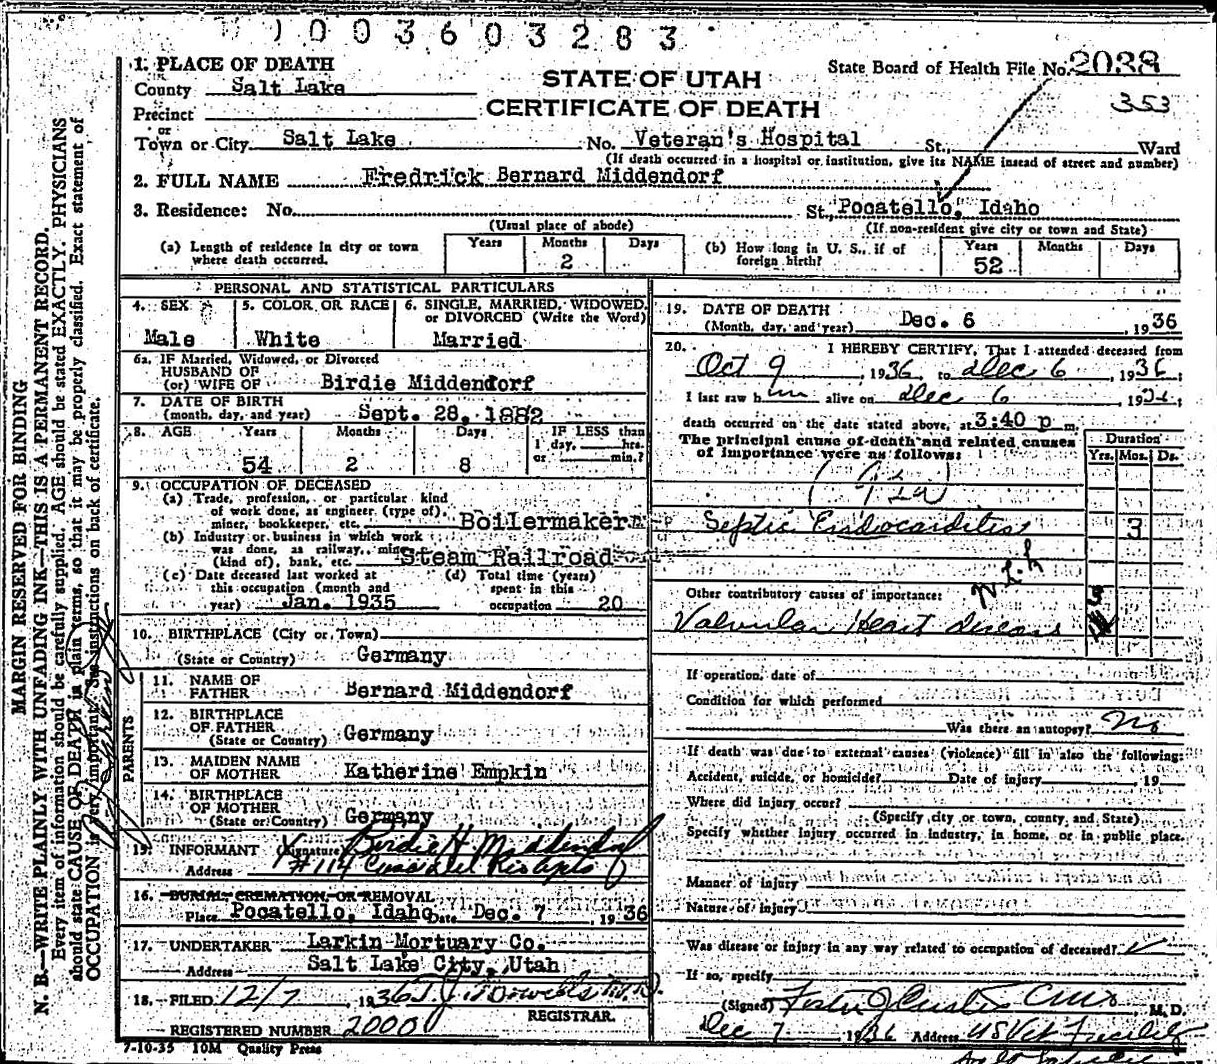 1003603283
1. PLACE OF DEATH
County Salt Lake
Precinct
or
Town or City Salt Lake No. Veteran's Hospital St., Ward
(If death occurred in a hospital or institution, give its NAME instead of street and number)
STATE OF UTAH
CERTIFICATE OF DEATH
State Board of Health File No. 2038
353
2. FULL NAME Fredrick Bernard Middendorf
3. Residence: No. St., Pocatello, Idaho
(Usual place of abode) (If non-resident give city or town and State)
(a) Length of residence in city or town where death occurred. Years Months 2 Days
(b) How long in U. S., if of foreign birth? Years 52 Months Days
PERSONAL AND STATISTICAL PARTICULARS
4. SEX Male
5. COLOR OR RACE White
6. SINGLE, MARRIED, WIDOWED, or DIVORCED (Write the Word) Married
6a. IF Married, Widowed, or Divorced
HUSBAND OF
(or) WIFE OF Birdie Middendorf
7. DATE OF BIRTH
(month, day, and year) Sept. 28, 1882
8. AGE Years 54 Months 2 Days 8 IF LESS than 1 day, hrs. or min.?
9. OCCUPATION OF DECEASED
(a) Trade, profession, or particular kind
of work done, as engineer (type of),
miner, bookkeeper, etc. Boilermaker
(b) Industry or business in which work
was done, as railway, mine
(kind of), bank, etc. Steam Railroad
(c) Date deceased last worked at
this occupation (month and
year) Jan. 1935
(d) Total time (years)
spent in this
occupation 20
10. BIRTHPLACE (City or Town)
(State or Country) Germany
PARENTS
11. NAME OF
FATHER Bernard Middendorf
12. BIRTHPLACE
OF FATHER
(State or Country) Germany
13. MAIDEN NAME
OF MOTHER Katherine Empkin
14. BIRTHPLACE
OF MOTHER
(State or Country) Germany
15. INFORMANT (Signature) X Birdie H Middendorf
Address #114 Casa del Rio Apts
16. BURIAL, CREMATION, OR REMOVAL
Place Pocatello, Idaho Date Dec. 7, 1936
17. UNDERTAKER Larkin Mortuary Co.
Address Salt Lake City, Utah
18. FILED 12/7, 1936
REGISTRAR.
REGISTERED NUMBER 2000
7-10-35 10M Quality Press
19. DATE OF DEATH
(Month, day, and year) Dec. 6, 1936
20. I HEREBY CERTIFY, That I attended deceased from
Oct 9, 1936, to Dec 6, 1936;
I last saw him alive on Dec 6, 1936;
death occurred on the date stated above, at 3:40 p m.
The principal cause of death and related causes
of importance were as follows:
Duration
Yrs. Mos. Ds.
Septic Endocarditis 3
Other contributory causes of importance:
Valvular Heart disease
If operation, date of
Condition for which performed
Was there an autopsy? No
If death was due to external causes (violence) fill in also the following:
Accident, suicide, or homicide? Date of injury , 19
Where did injury occur?
(Specify city or town, county, and State)
Specify whether injury occurred in industry, in home, or in public place.
Manner of injury
Nature of injury
Was disease or injury in any way related to occupation of deceased?
If so, specify
(Signed) M. D.
Dec 7 1936 Address US Vet Facility
MARGIN RESERVED FOR BINDING
N. B.—WRITE PLAINLY WITH UNFADING INK—THIS IS A PERMANENT RECORD.
Every item of information should be carefully supplied. AGE should be stated EXACTLY. PHYSICIANS
should state CAUSE OF DEATH in plain terms, so that it may be properly classified. Exact statement of
OCCUPATION is very important. See instructions on back of certificate.